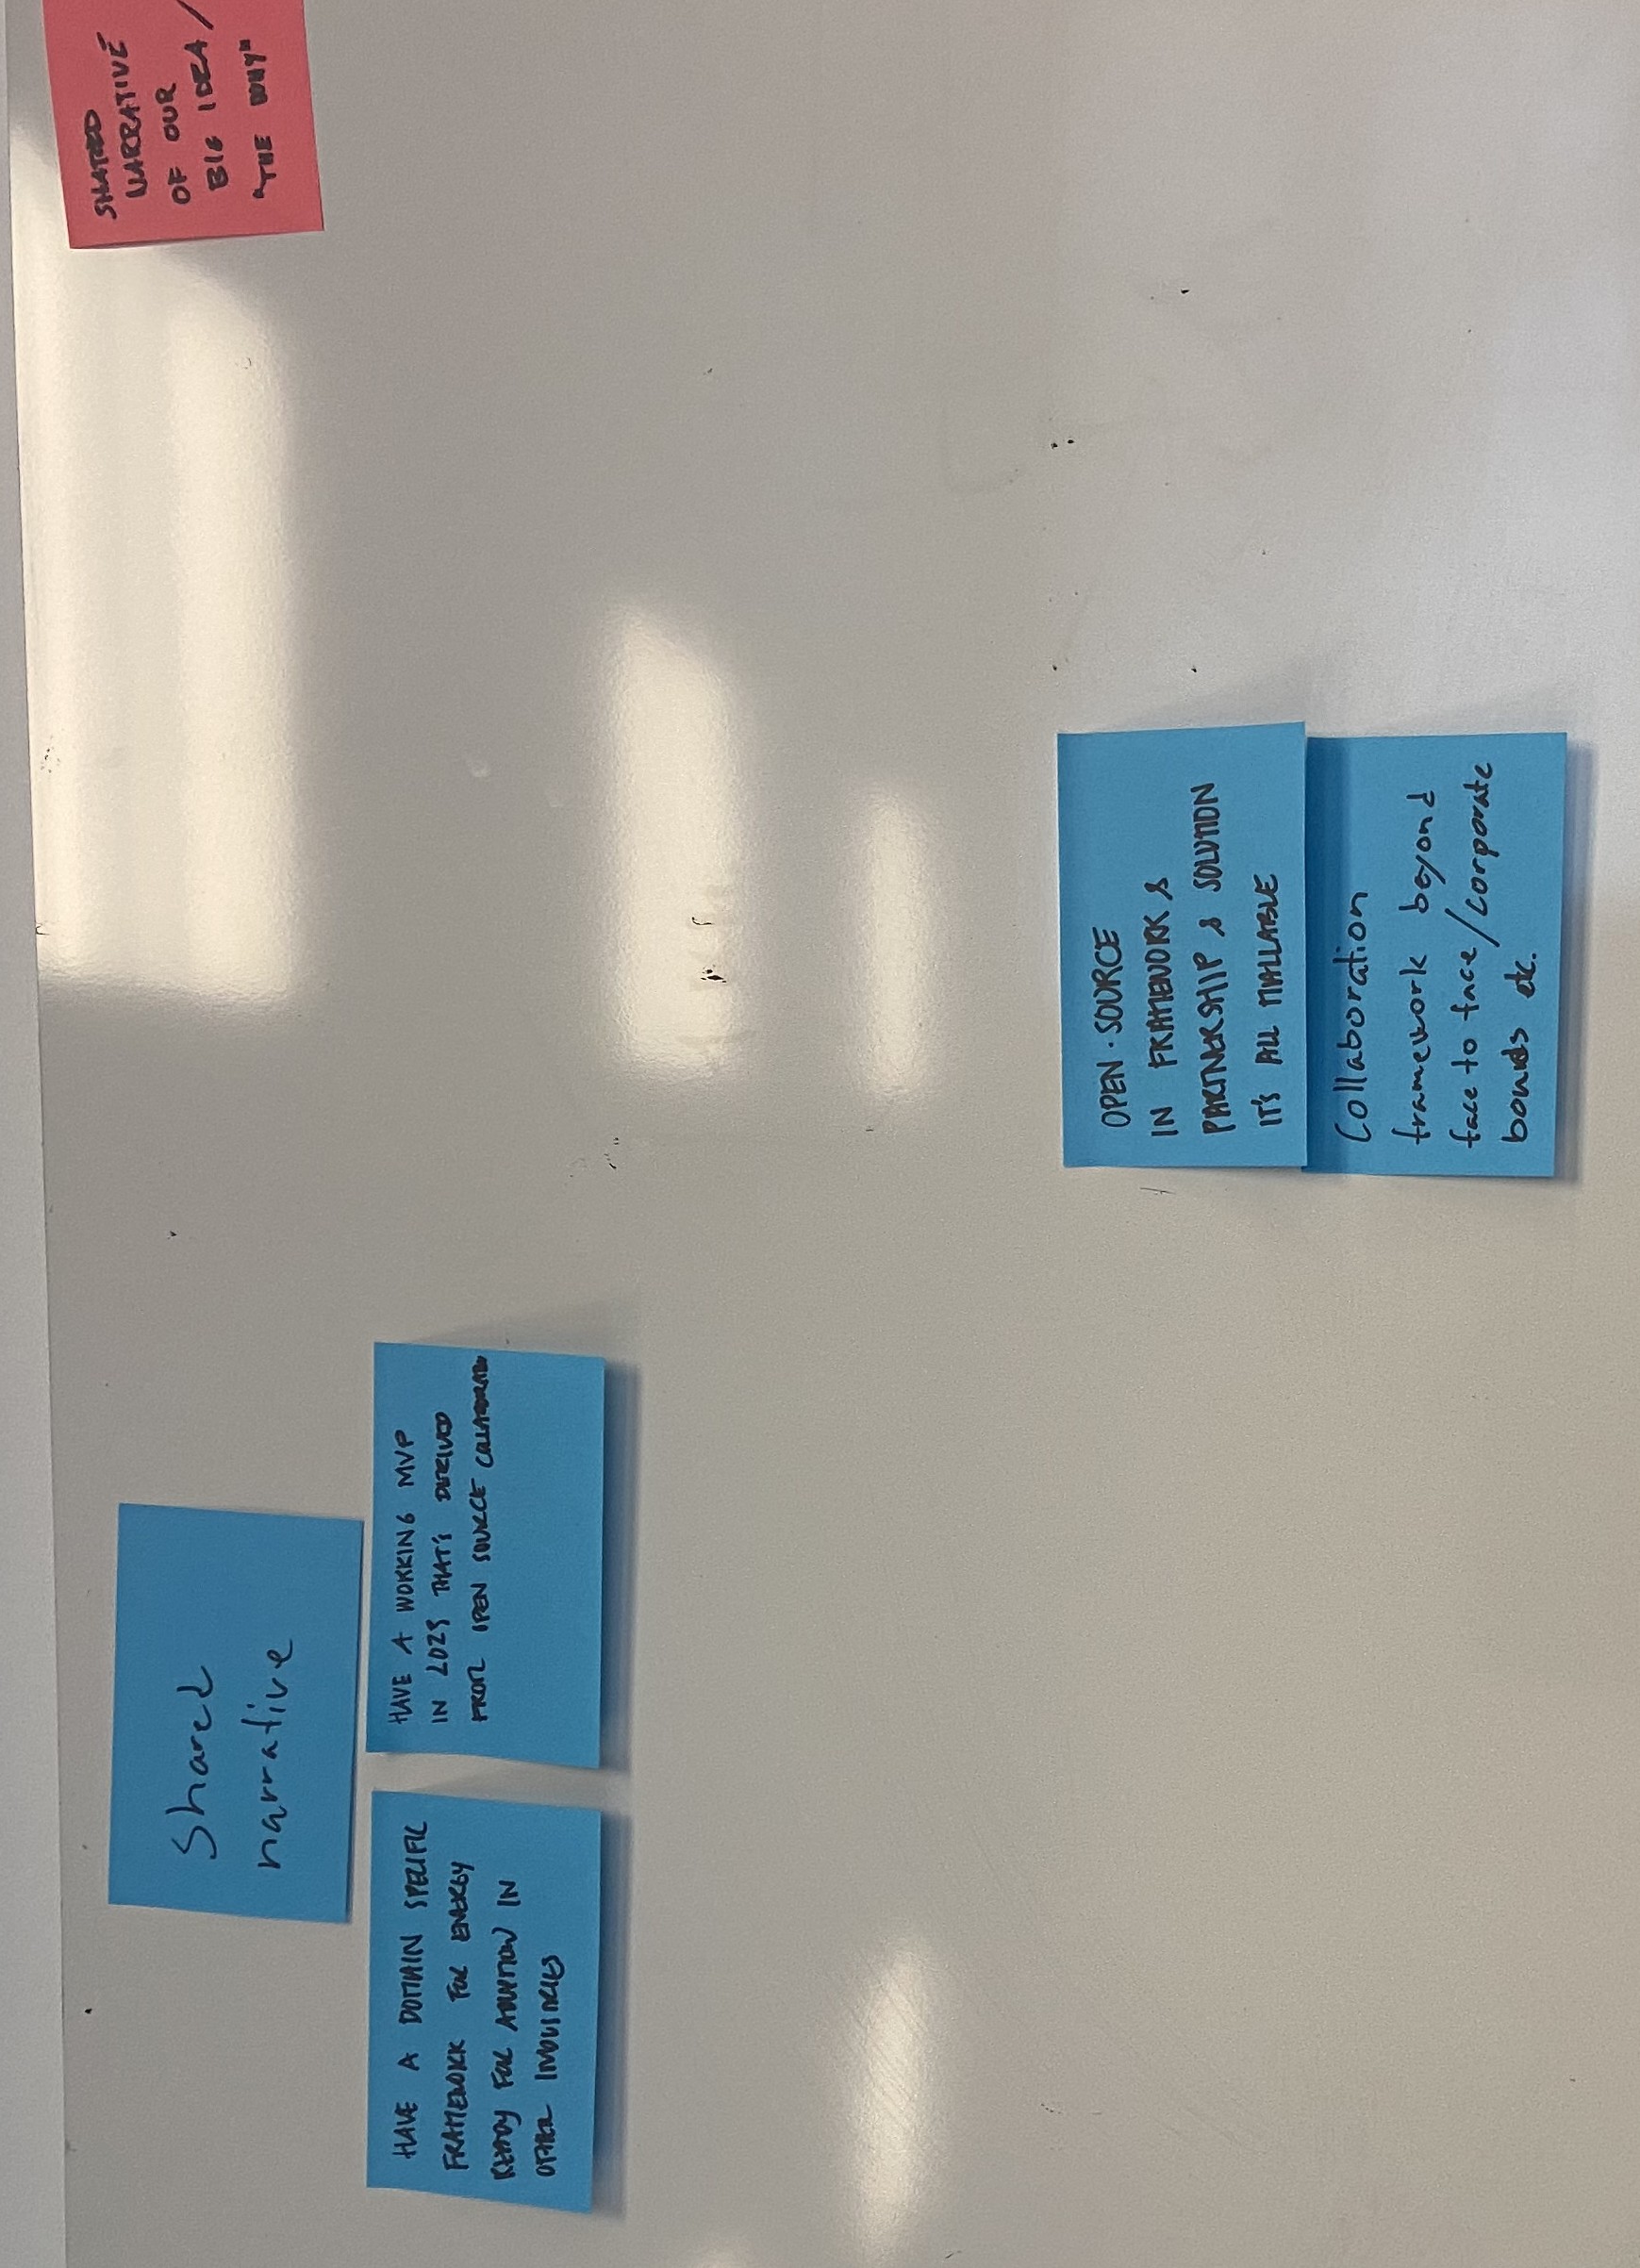 Shared
narrative
HAVE A DOMAIN SPECIFIC
FRAMEWORK FOR ENERGY
READY FOR ADOPTION IN
OTHER INDUSTRIES
HAVE A WORKING MVP
IN 2025 THAT'S DERIVED
FROM OPEN SOURCE COLLABORATION
SHARED
NARRATIVE
OF OUR
BIG IDEA/
"THE WHY"
OPEN-SOURCE
IN FRAMEWORK &
PARTNERSHIP & SOLUTION
IT'S ALL MALLABLE
Collaboration
framework beyond
face to face/corporate
bounds etc.